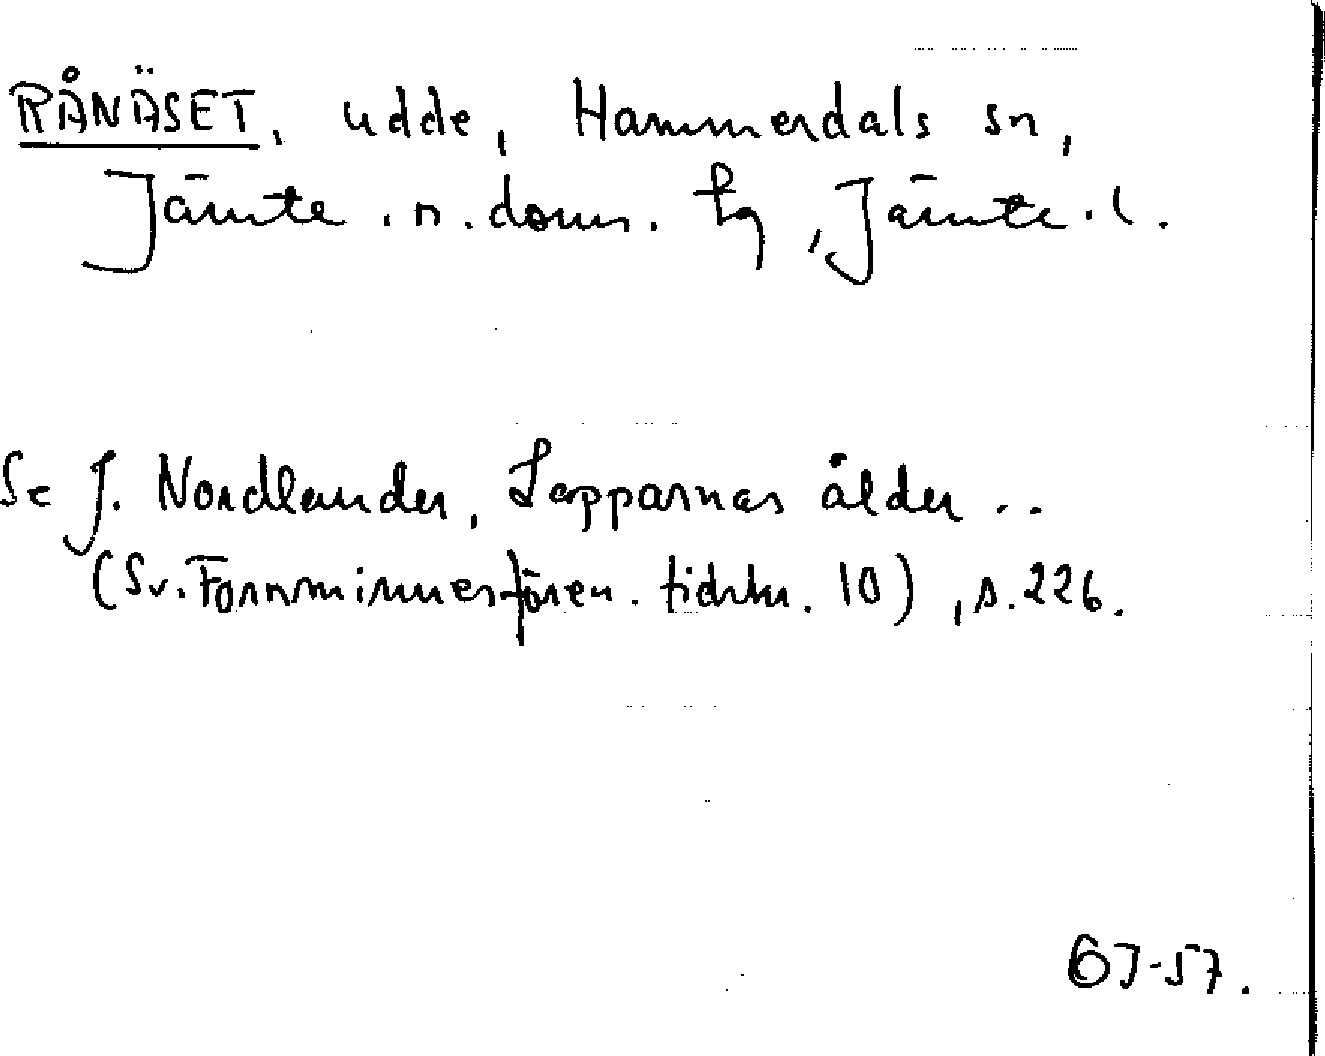 RÅNÄSET, udde, Hammerdals sn,
Jämte. n. doms. tg, Jämte. l.
Se J. Nordlander, Lapparnas ålder ..
(Sv. Fornminnesfören. tidskr. 10), s. 226.
GJ-57.